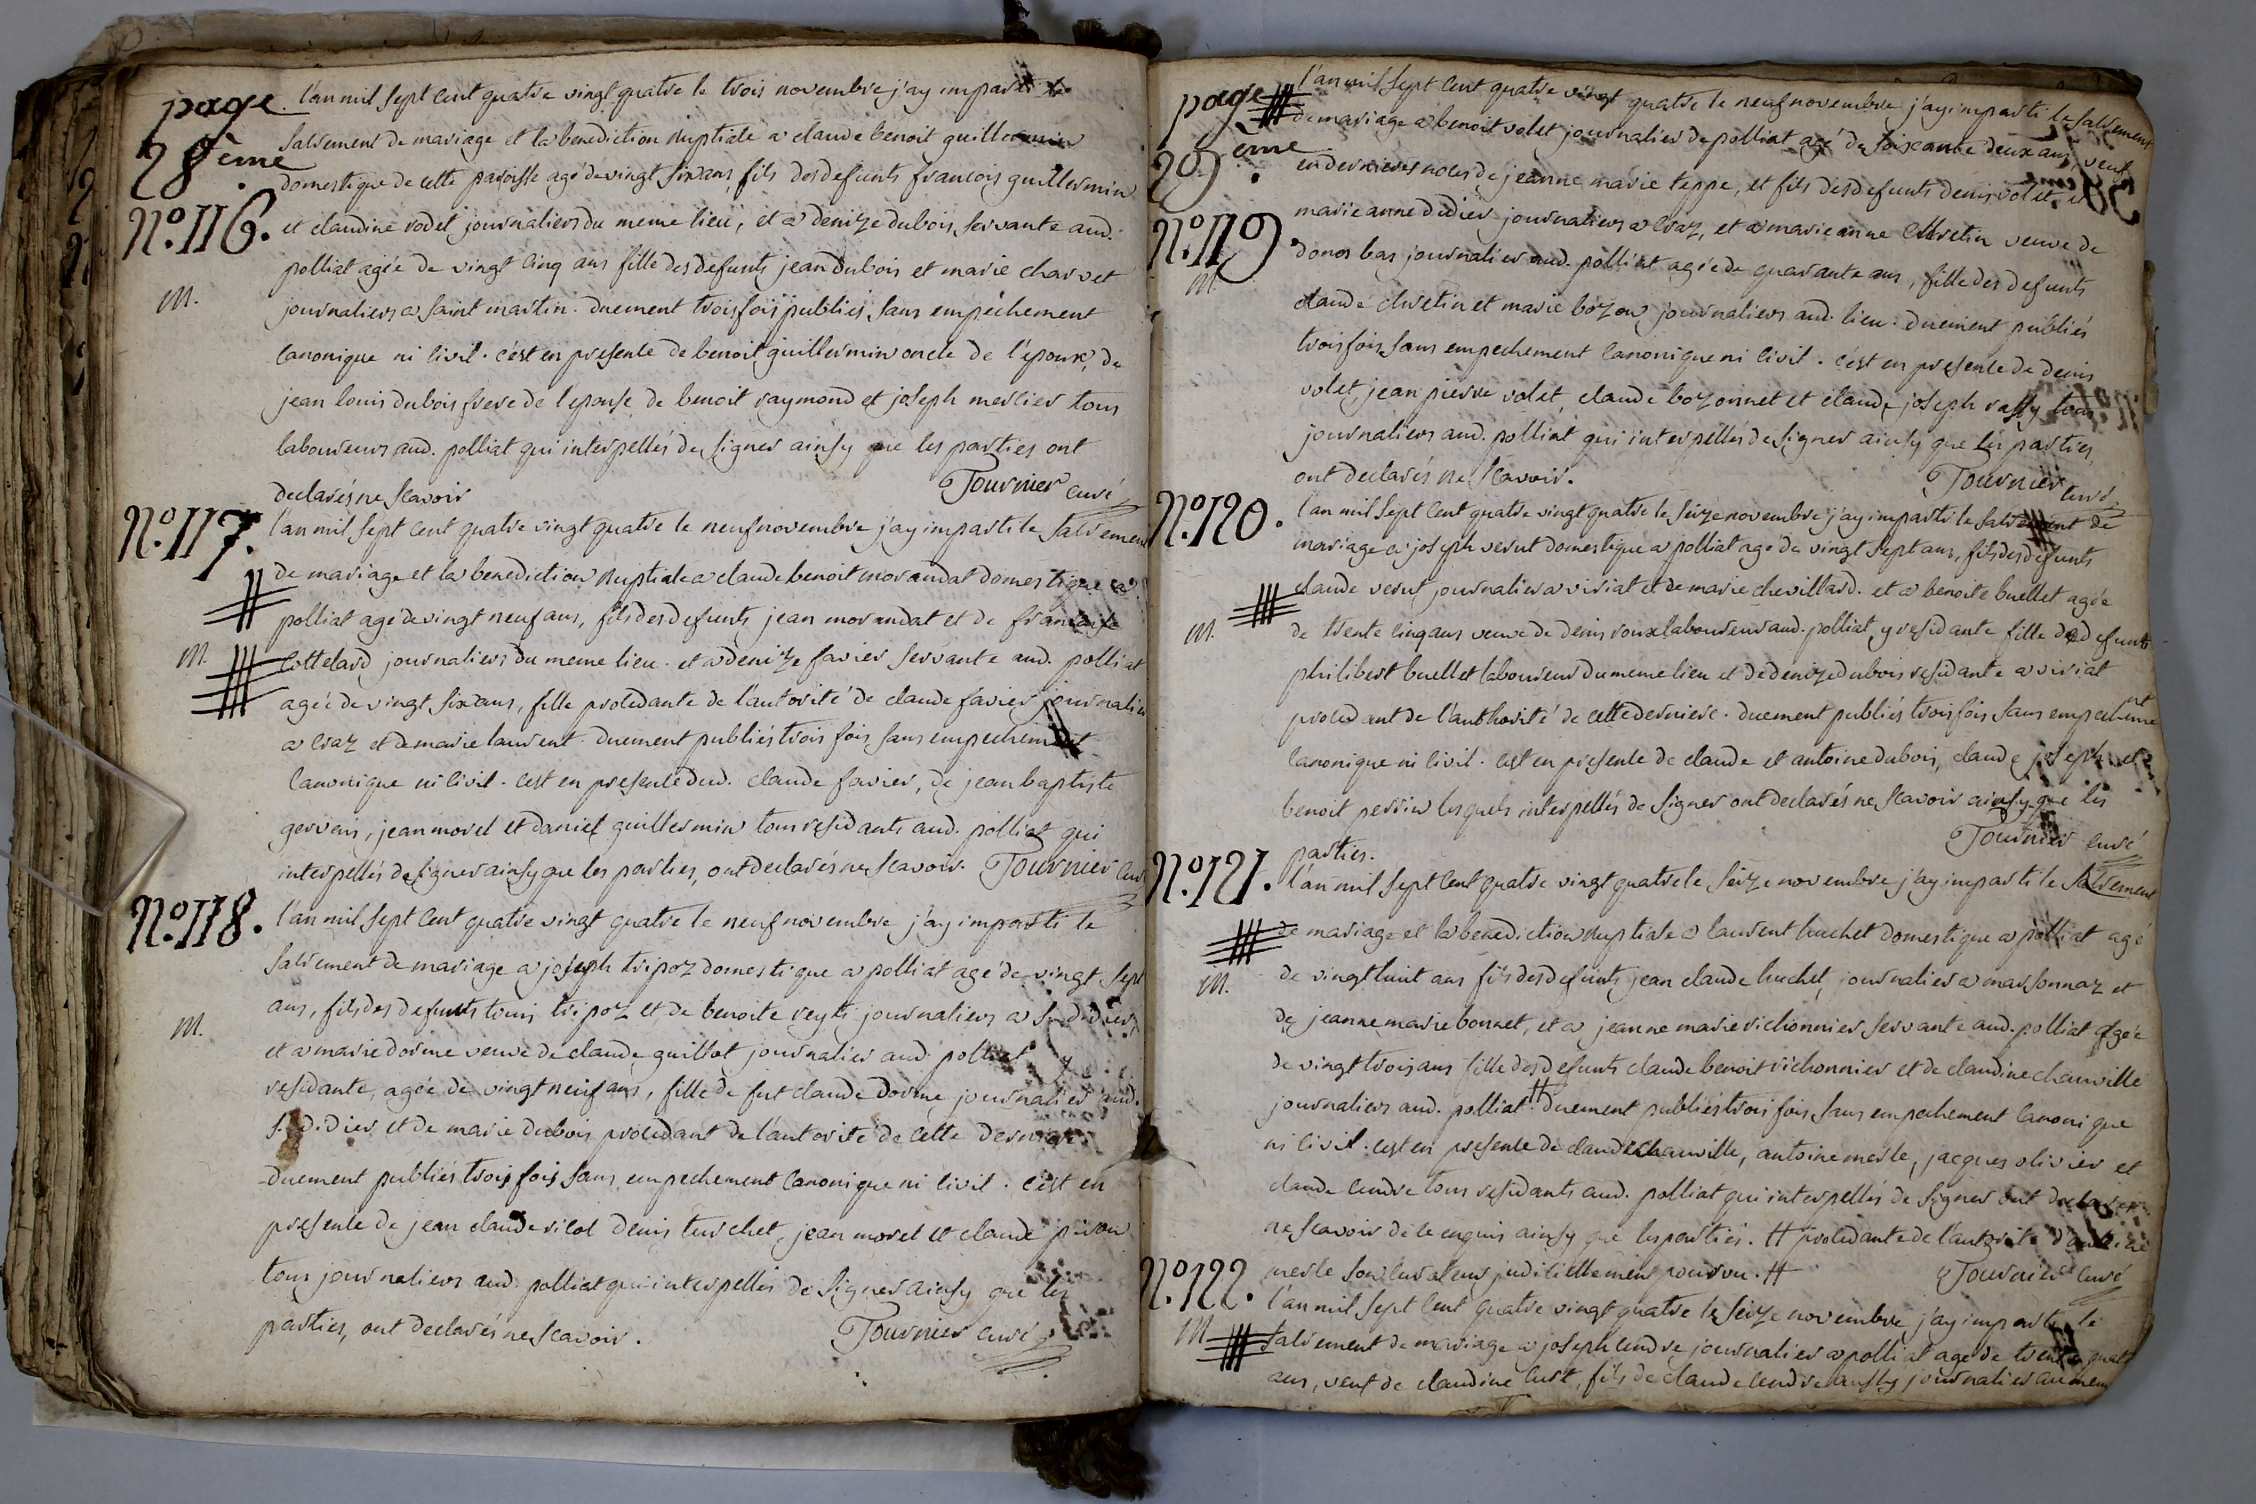 page
28ème
l'an mil sept cent quatre vingt quatre le trois novembre j'ay imparti le
sacrement de mariage et la benediction nuptiale a claude benoit guillermin
domestique de cette paroisse agé de vingt six ans, fils des defunts francois guillermin
No. 116.
et claudine rodet journaliers du meme lieu, et a denize dubois servante aud.
polliat agée de vingt cinq ans fille des defunts jean dubois et marie charvet
m.
journaliers a saint martin. duement trois fois publiés sans empechement
canonique ni civil. c'est en presence de benoit guillermin oncle de l'epoux, de
jean louis dubois frere de l'epouse de benoit raymond et joseph mercier tous
laboureurs aud. polliat qui interpellés de signer ainsy que les parties ont
declarés ne scavoir Tournier curé
No. 117.
l'an mil sept cent quatre vingt quatre le neuf novembre j'ay imparti le sacrement
de mariage et la benediction nuptiale a claude benoit morandat domestique a
polliat agé de vingt neuf ans, fils des defunts jean morandat et de francoise
m.
cottelard journaliers du meme lieu. et a denize favier servante aud. polliat
agée de vingt six ans, fille procedante de l'autorité de claude favier journalier
a craz et de marie laurent. duement publiés trois fois sans empechement
canonique ni civil. c'est en presence dud. claude favier, de jean baptiste
gervais, jean morel et daniel guillermin tous residants aud. polliat qui
interpellés de signer ainsy que les parties, ont declarés ne scavoir. Tournier curé
No. 118.
l'an mil sept cent quatre vingt quatre le neuf novembre j'ay imparti le
sacrement de mariage a joseph tripoz domestique a polliat agé de vingt sept
ans, fils des defunts louis tripoz et de benoite reyti journaliers a st. didier,
m.
et a marie dorme veuve de claude guillot journalier aud. polliat y
residante, agée de vingt neuf ans, fille de fut claude dorme journalier aud.
st. didier et de marie dubois procedant de l'autorité de cette derniere
duement publiés trois fois sans empechement canonique ni civil. c'est en
presence de jean claude ricol denis turchet, jean morel et claude
tous journaliers aud. polliat qui interpellés de signer ainsy que les
parties, ont declarés ne scavoir. Tournier curé
page
29ème.
l'an mil sept cent quatre vingt quatre le neuf novembre j'ay imparti le sacrement
de mariage a benoit volet journalier de polliat agé de soixante deux ans, veuf
en dernieres noces de jeanne marie teppe, et fils des defunts denis volet et
No. 119.
marie anne didier journaliers a craz, et a marie anne chretin veuve de
donos bas journalier aud. polliat agée de quarante ans, fille des defunts
m.
claude chretin et marie bozon journaliers aud. lieu. duement publiés
trois fois sans empechement canonique ni civil. c'est en presence de denis
volet, jean pierre volet, claude bozonnet et claude joseph raffy tous
journaliers aud. polliat qui interpellés de signer ainsy que les parties,
ont declarés ne scavoir. Tournier curé
No. 120.
l'an mil sept cent quatre vingt quatre le seize novembre j'ay imparti le sacrement de
mariage a joseph verut domestique a polliat agé de vingt sept ans, fils des defunts
claude verut journalier a viriat et de marie chevillard. et a benoite buellet agée
m.
de trente cinq ans veuve de denis roux laboureur aud. polliat, y residante fille de defunts
philibert buellet laboureur du meme lieu et de denize dubois residante a viriat
procedant de l'authorité de cette derniere. duement publiés trois fois sans empechement
canonique ni civil. c'est en presence de claude et antoine dubois, claude joseph et
benoit perrin lesquels interpellés de signer ont declarés ne scavoir ainsy que les
parties. Tournier curé
No. 121.
l'an mil sept cent quatre vingt quatre le seize novembre j'ay imparti le sacrement
de mariage et la benediction nuptiale a laurent huchet domestique a polliat agé
m.
de vingt huit ans fils des defunts jean claude huchet, journalier a marsonnaz et
de jeanne marie bonnet, et a jeanne marie richonnier servante aud. polliat agée
de vingt trois ans fille des defunts claude benoit richonnier et de claudine chanville
journaliers aud. polliat. # duement publiés trois fois sans empechement canonique
ni civil. c'est en presence de claude chanville, antoine merle, jacques olivier et
claude cendre tous residants aud. polliat qui interpellés de signer ont declarés
ne scavoir de ce enquis ainsy que les parties. # procedante de l'autorité d'antoine
merle son curateur judiciellement pourvu. # Tournier curé
No. 122.
l'an mil sept cent quatre vingt quatre le seize novembre j'ay imparti le
m.
sacrement de mariage a joseph cendre journalier a polliat agé de trente quatre
ans, veuf de claudine curt, fils de claude cendre aussy journalier au meme